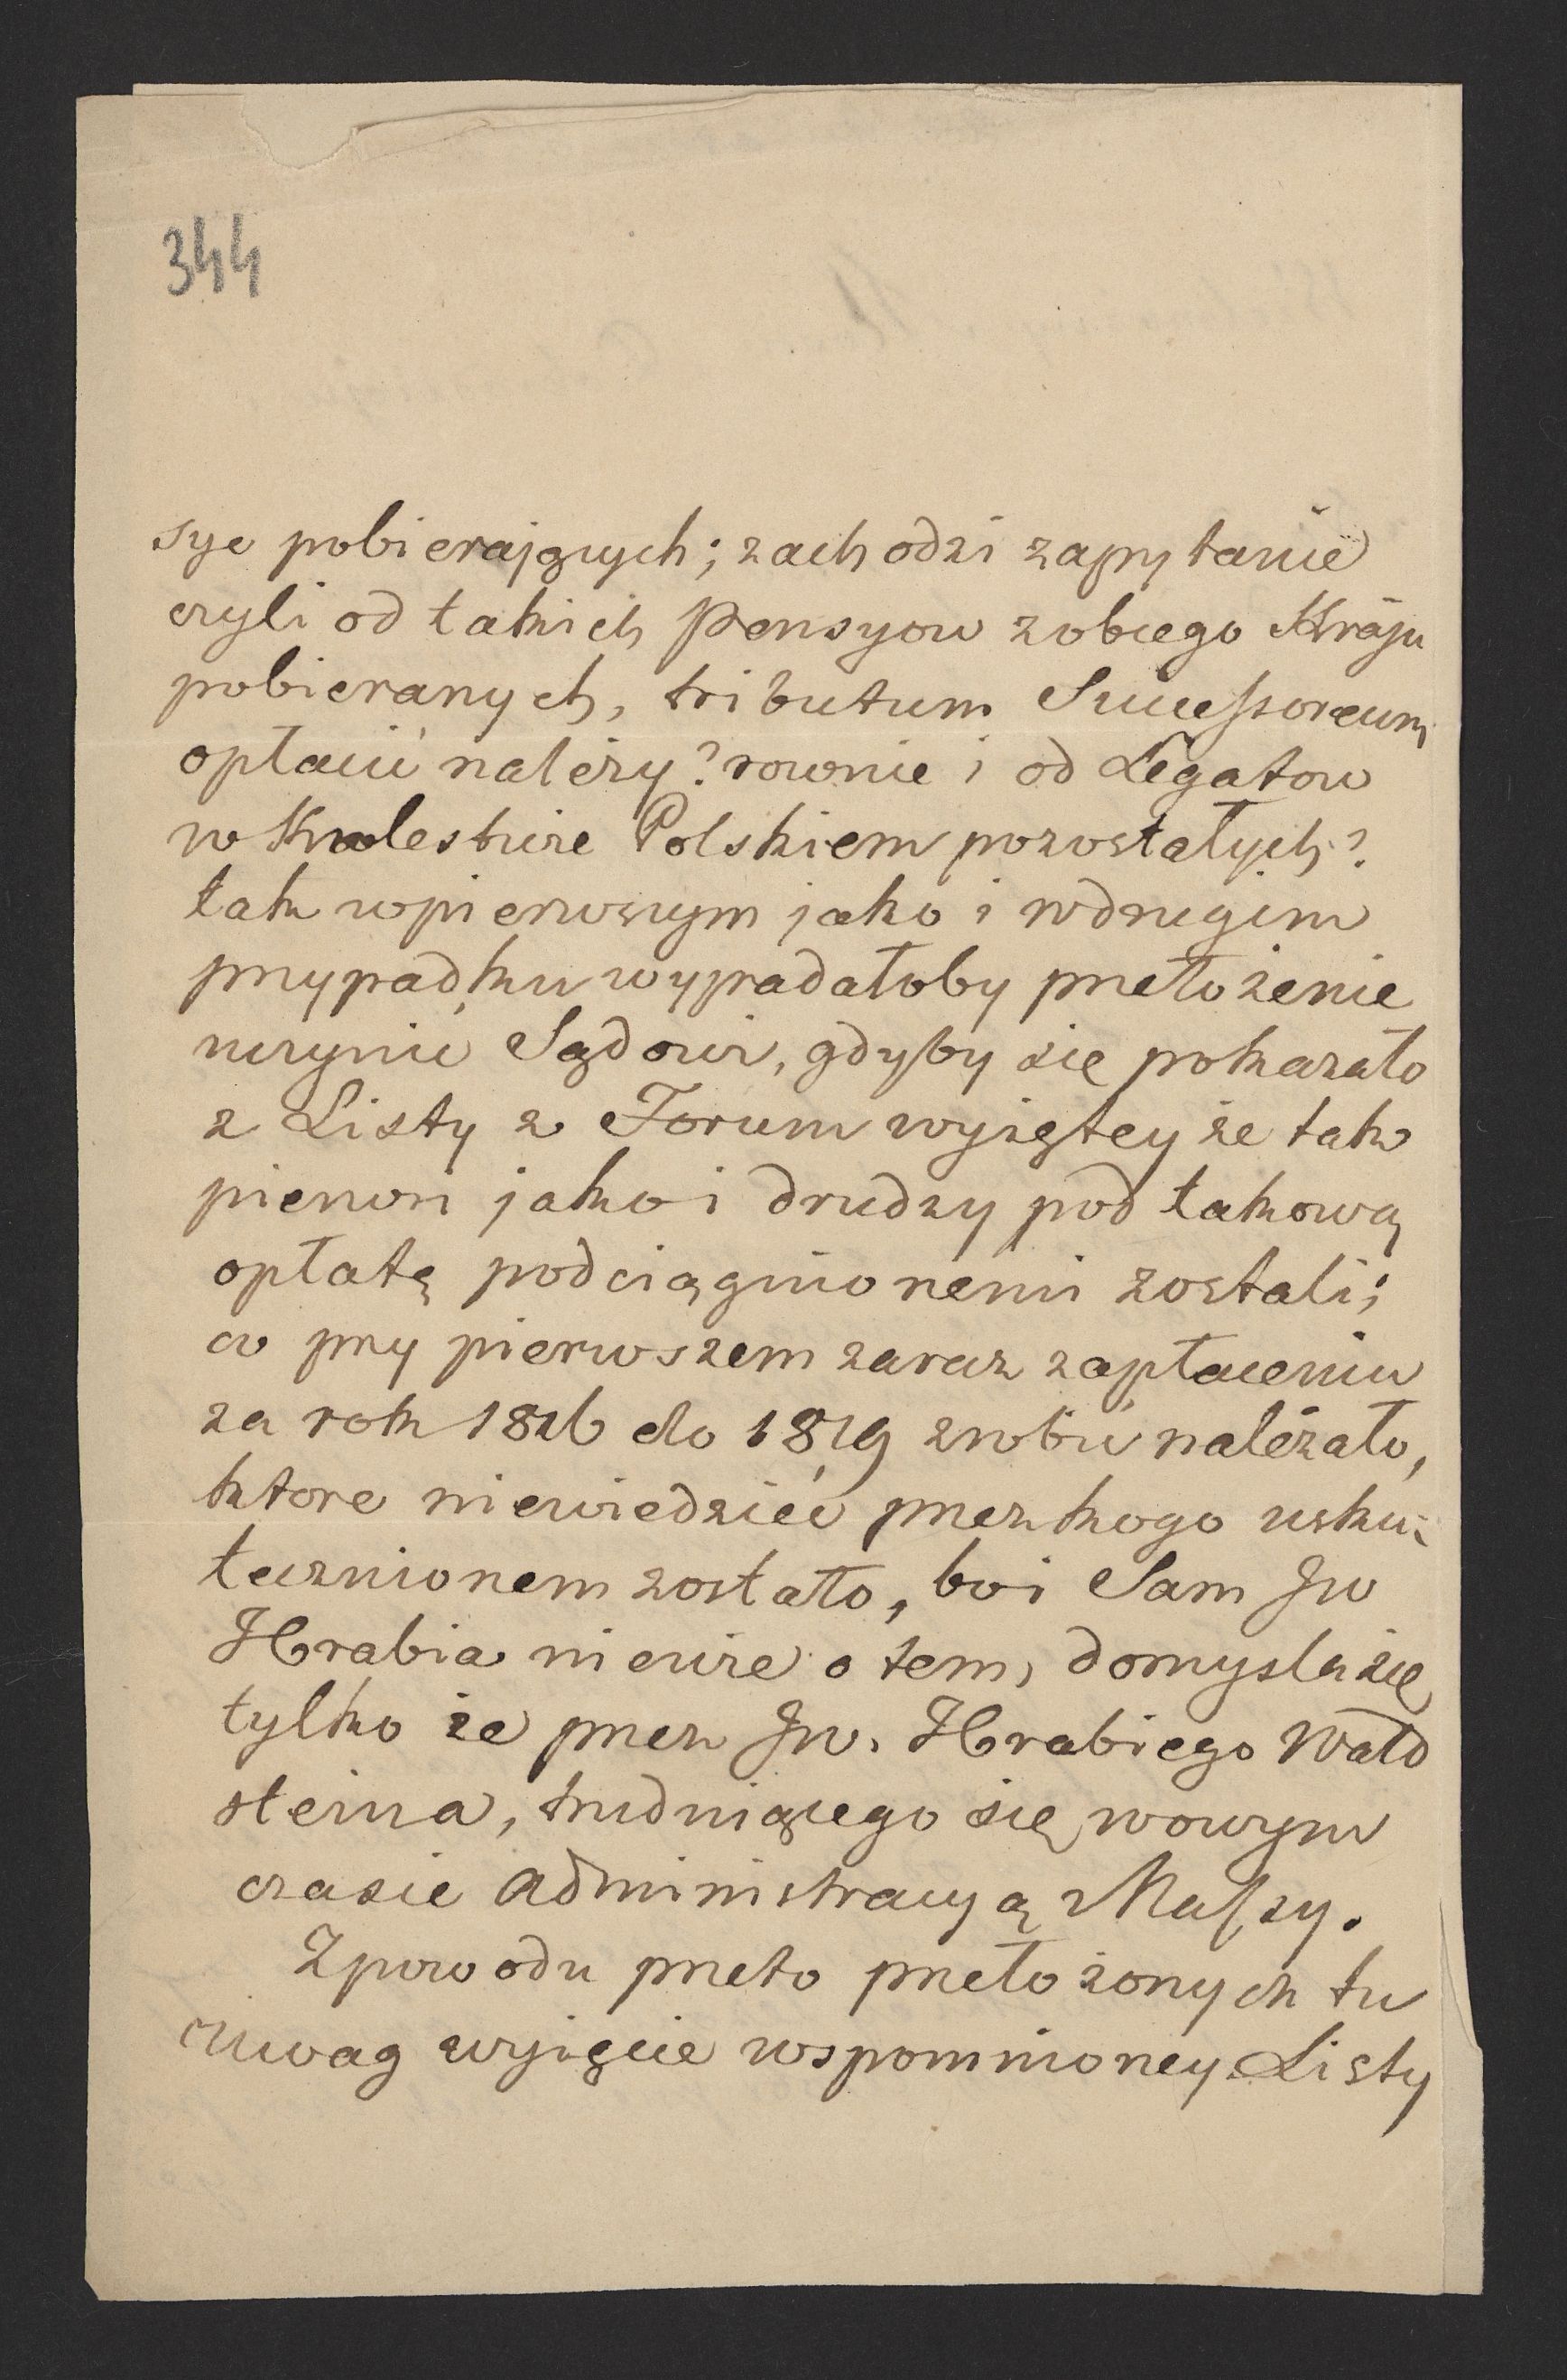 344
sye pobierających; zachodzi zapytanie
czyli od takich Pensyow zobcego Kraju
pobieranych, tributum Successoreum
opłacić należy? rownie i od Legatow
w Krolestwie Polskiem pozostałych?
tak wpierwszym jako i wdrugim
przypadku wypadałoby przełożenie
uczynić Sądowi, gdyby się pokazało
z Listy z Forum wyiętey że tak
pierwsi jako i drudzy pod takową
opłatę podciągnionemi zostali;
co przy pierwszem zaraz zapłaceniu
za rok 1816 do 1819 zrobić należało,
ktore niewiedzieć przez kogo usku-
tecznionem zostało, bo i Sam Jw
Hrabia niewie o tem, domysla się
tylko że przez Jw. Hrabiego Wald
steina, trudniącego się wowym
czasie Administracyą Massy.
Zpowodu przeto przełożonych tu
uwag wyjęcie wspomnioney Listy